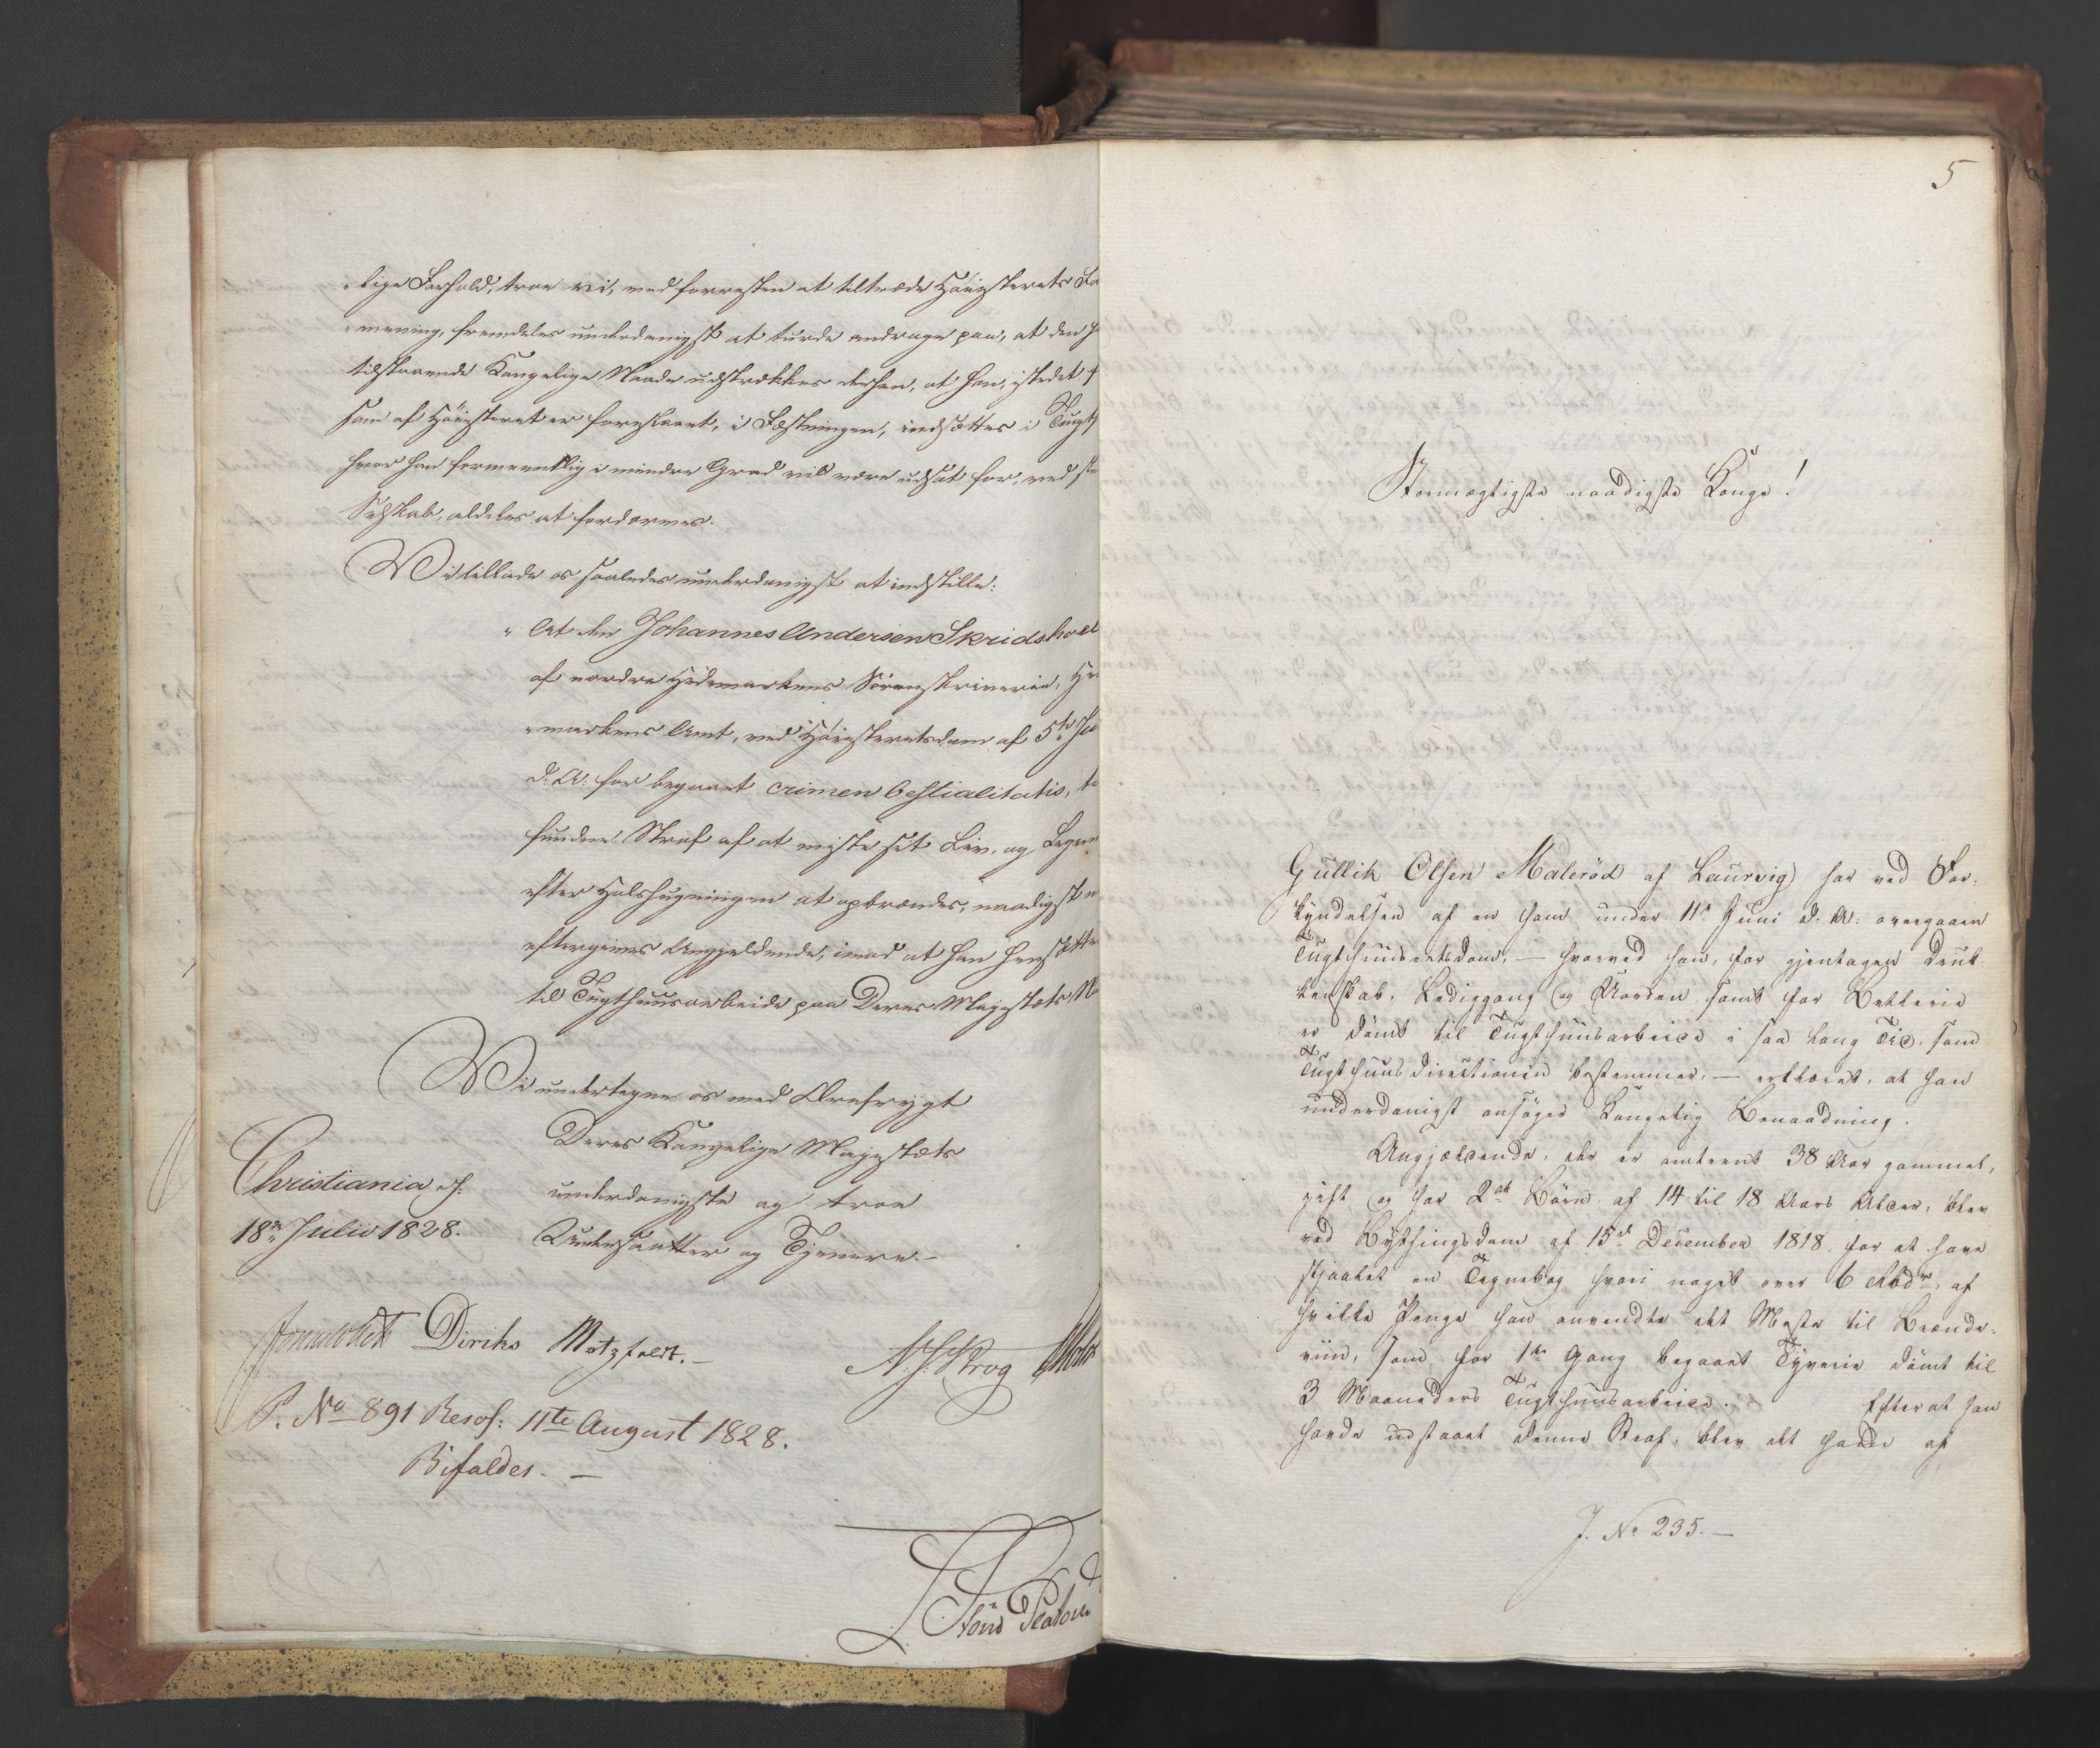 -lige Forhold, troe vi, med forresten at tiltræde Høiesterets Fo
-mening, fremdeles underdanigst at turde andrage paa, at den H
tilstaaende Kongelige Naade udstrækkes derhen, at han, istedet f
som af Høiesteret er foreslaaet, i Fæstningen, indsættes i Tugt
hvor han formeentlig i mindre Grad vil være udsat for, ved sle
Selskab, aldeles at fordærves.
Vi tillade os saaledes underdanigst at indstille:
" At den Johannes Andersen Skridshoel
af nordre Hedemarkens Sorenskriverie, He
-markens Amt, ved Høiesteretsdom af 5te Ju
d. A. for begaaet crimen bestialitatis, til
fundne Straf af at miste sit Liv, og Legem
efter Halshugningen at opbrændes, naadigst m
eftergives Angjældende, imod at han hensætte
til Tugthuusarbeide paa Deres Majestæts Na
Vi undertegne os med Ærefrygt
Deres Kongelige Majestæts
Christiania d:
underdanigste og troe
18de Julio 1828.
Undersaatter og Tjenere.-
Diriks Motzfeldt.- N. J. Krog
P. No 891 Resol: 11te August 1828.
Bifaldes. -
5
Stormægtigste naadigste Konge!
Gullik Olsen Malerød af Laurvig har ved For-
kyndelsen af en ham under 11te Juni d: A: overgaaen
Tugthuusretsdom, — hvorved han, for gjentagen Druk-
kenskab, Lediggang og Uorden samt for Betlerie
er dømt til Tugthuusarbeide i saa lang Tid, som
Tugthuusdirectionen bestemmer, — erklæret, at han
underdanigst ansøger Kongelig Benaadning.
Angjældende, der er omtrent 38 Aar gammel,
gift og har 2de Børn af 14 til 18 Aars Alder, blev
ved Bythingsdom af 15de December 1818 for at have
stjaalet en Tegnebog hvori noget over 6 Rbdr, af
hvilke Penge han anvendte det Meste til Brænde-
viin, som for 1ste Gang begaaet Tyverie dømt til
3 Maaneders Tugthuusarbeide. Efterat han
havde udstaaet denne Straf, blev det ham af
J. No 235.—